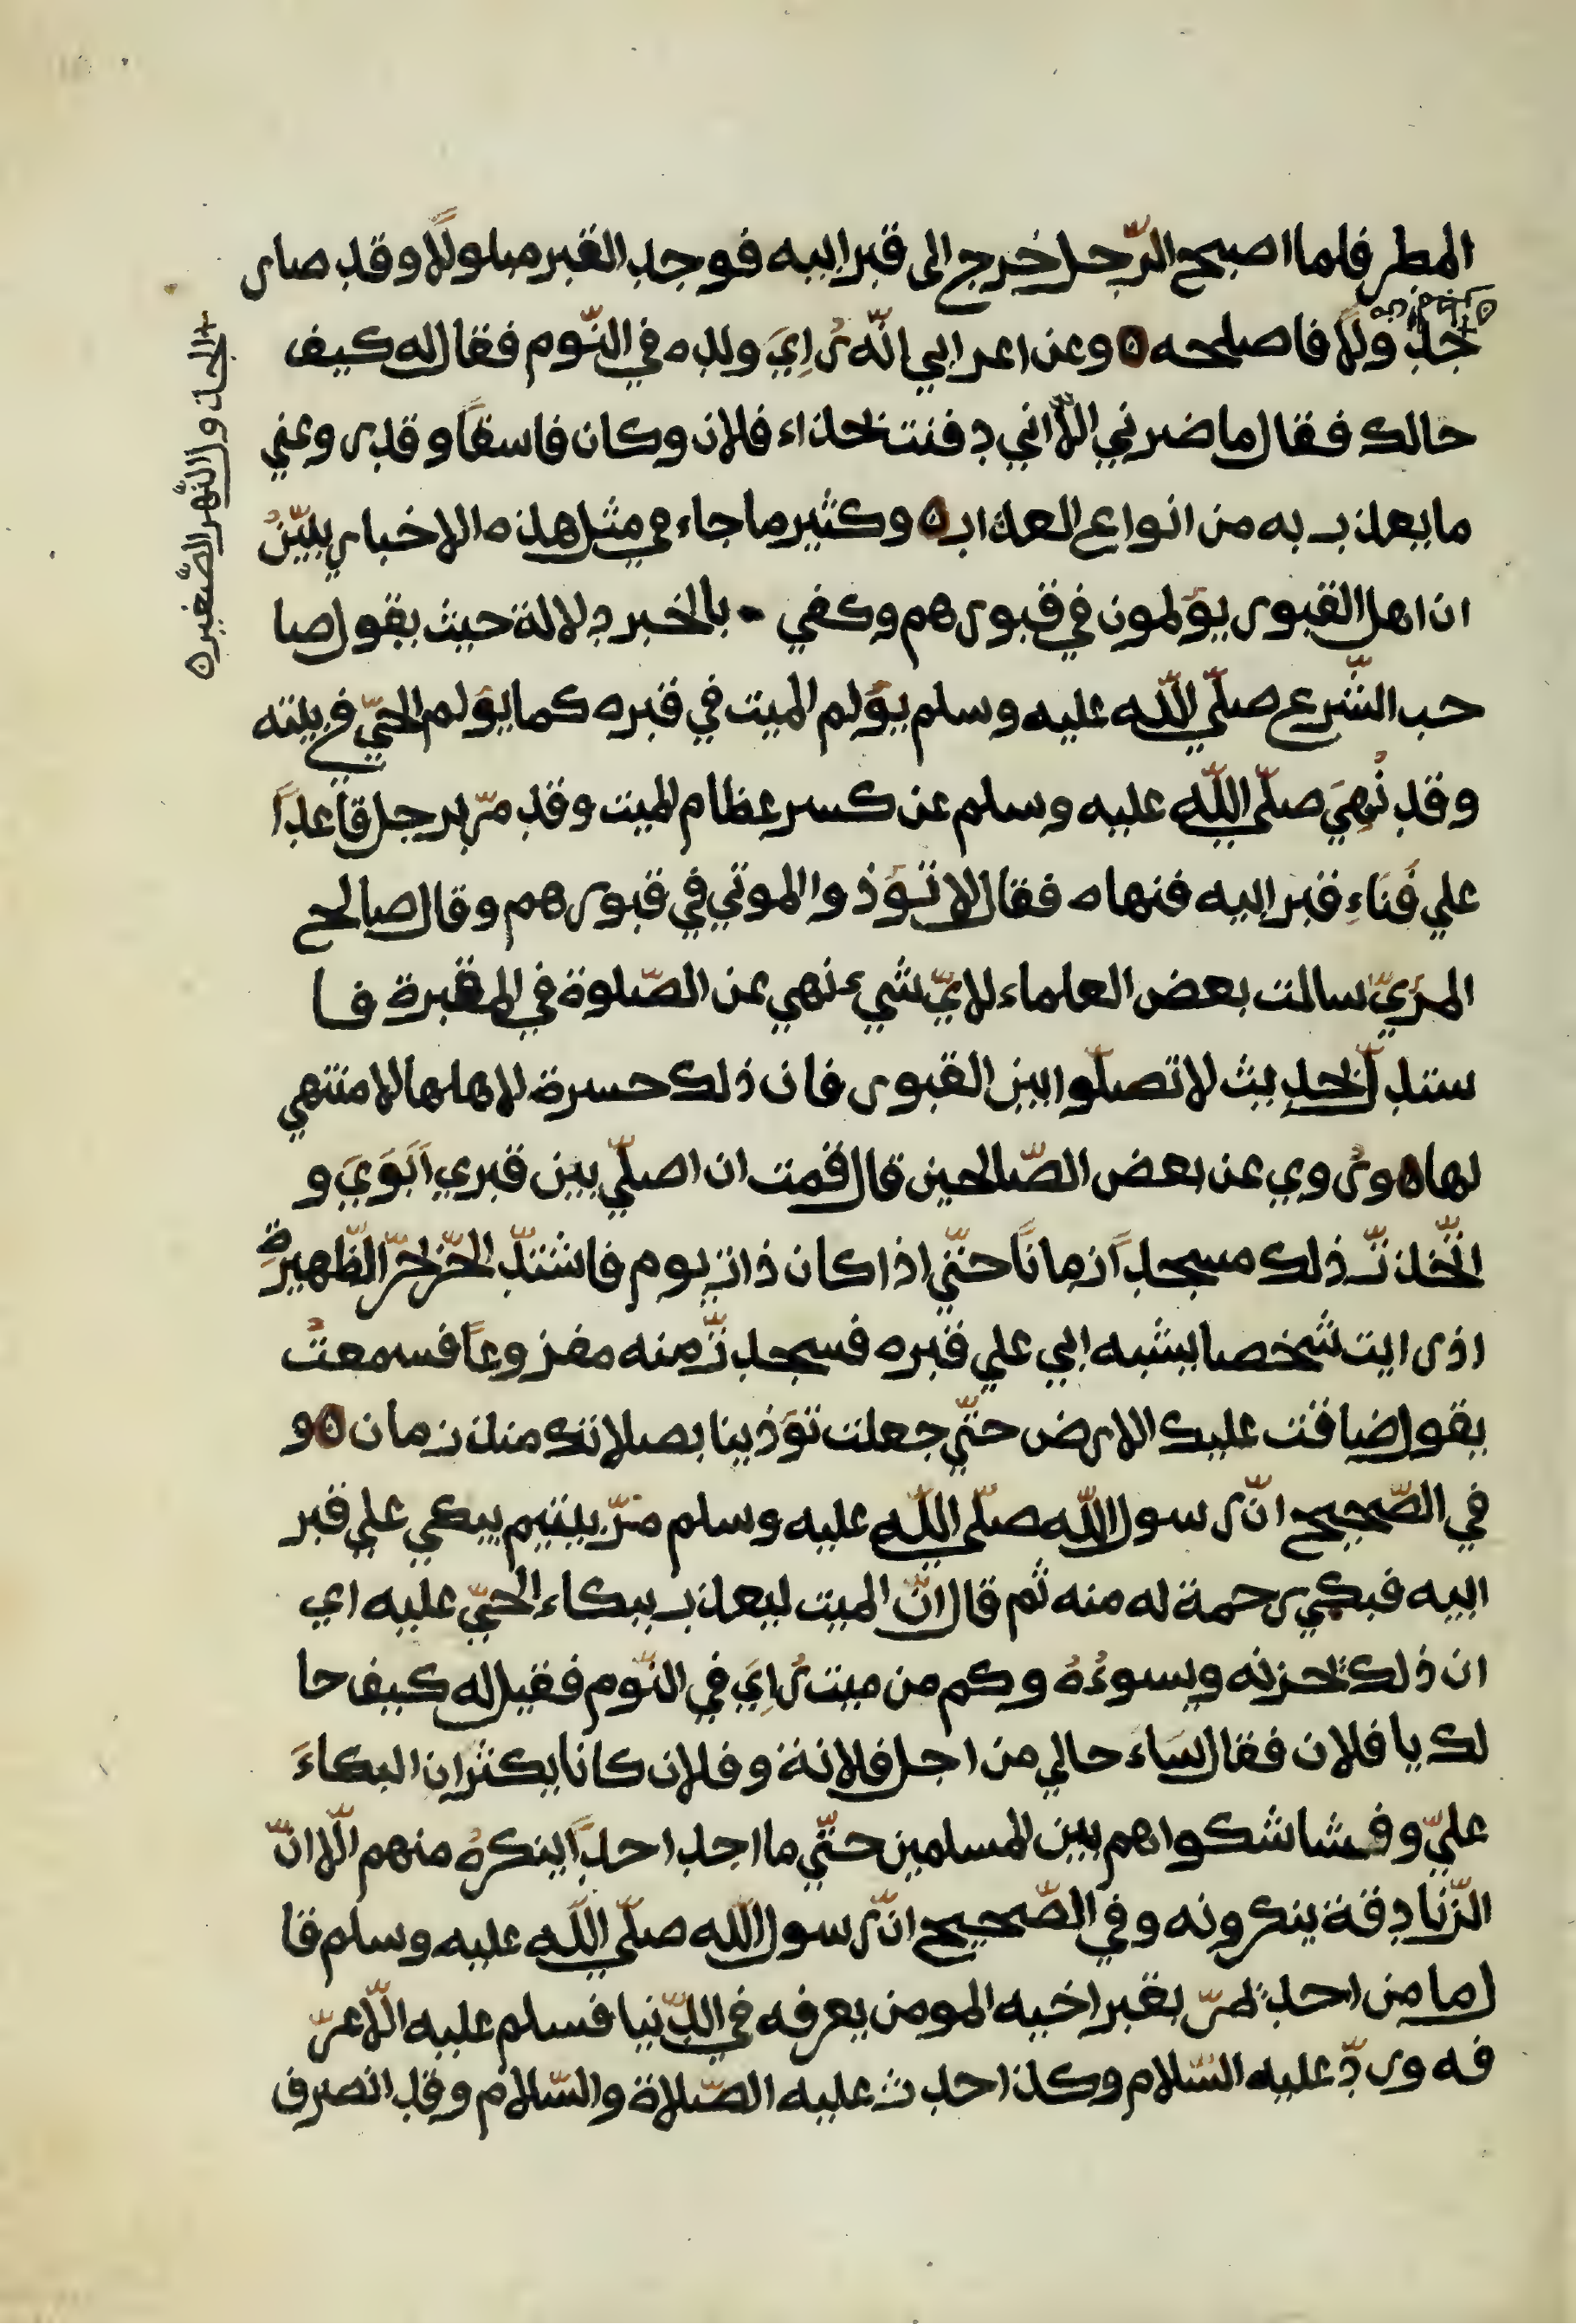 المطر فلما اصبح الرّجل خرج الى قبر ابيه فوجد القبر مبلولًا وقد صار
جَدْوَلًا فاصلحه ٥ وعن اعرابي انّه رُاِيَ ولده في النّوم فقال له كيف
حالك فقال ما ضرني الّا اني دفنت بحذاء فلان وكان فاسقًا وقد روعني
ما يعذب به من انواع العذاب ٥ وكثير ما جاء في مثل هذه الاخبار يبيّنُ
ان اهل القبور يؤلمون في قبورهم وكفي بالخبر دلالة حيث يقول صا
حب الشّرع صلّي اللّه عليه وسلم يؤلم الميت في قبره كما يؤلم الحيّ في بيته
وقد نُهِيَ صلّي اللّه عليه وسلم عن كسر عظام الميت وقد مرّ برجل قاعدًا
علي فُنَاءِ قبر ابيه فنهاه فقال لا تؤذوا الموتي في قبورهم وقال صالح
المرّيّ سالت بعض العلماء لايّ شيء نهي عن الصّلوة في المقبرة فا
ستدل بحديث لا تصلّوا بين القبور فان ذلك حسرة لاهلها لا منتهي
لها ٥ ورُوي عن بعض الصّالحين قال قمت ان اصلّي بين قبري اَبَوَيَ و
اتّخذتّ ذلك مسجدًا زمانًا حتّي اذا كان ذات يوم فاشتدّ الحرّ لحرّ الظّهيرةِ
اذ رايت شخصا يشبه ابي علي قبره فسجدتّ منه مفزوعًا فسمعتُ
يقول ضاقت عليك الارض حتّي جعلت تؤذينا بصلاتك منذ زمان ٥ و
في الصّحيح انّ رسول اللّه صلّي اللّه عليه وسلم مرّ بيتيم يبكي علي قبر
ابيه فبكي رحمة له منه ثم قال انّ الميت ليعذب ببكاء الحيّ عليه اي
ان ذلك يحزنه ويسوءُهُ وكم من ميت رُاِيَ في النّوم فقيل له كيف حا
لك يا فلان فقال سَاءَ حالي من اجل فلانة وفلان كانا يكثران البكاءَ
عليّ وفشا شكواهم بين المسلمين حتّي ما اجد احدًا ينكرهُ منهم الّا انّ
الزّنادقة ينكرونه وفي الصّحيح انّ رسول اللّه صلّي اللّه عليه وسلم قا
ل ما من احد يمرّ بقبر اخيه المومن يعرفه في الدّنيا فسلم عليه الّا عر
فه وردّ عليه السّلام وكذا حدث عليه الصّلاة والسّلام وقد انصرف
والنّهر الصّغير ٥